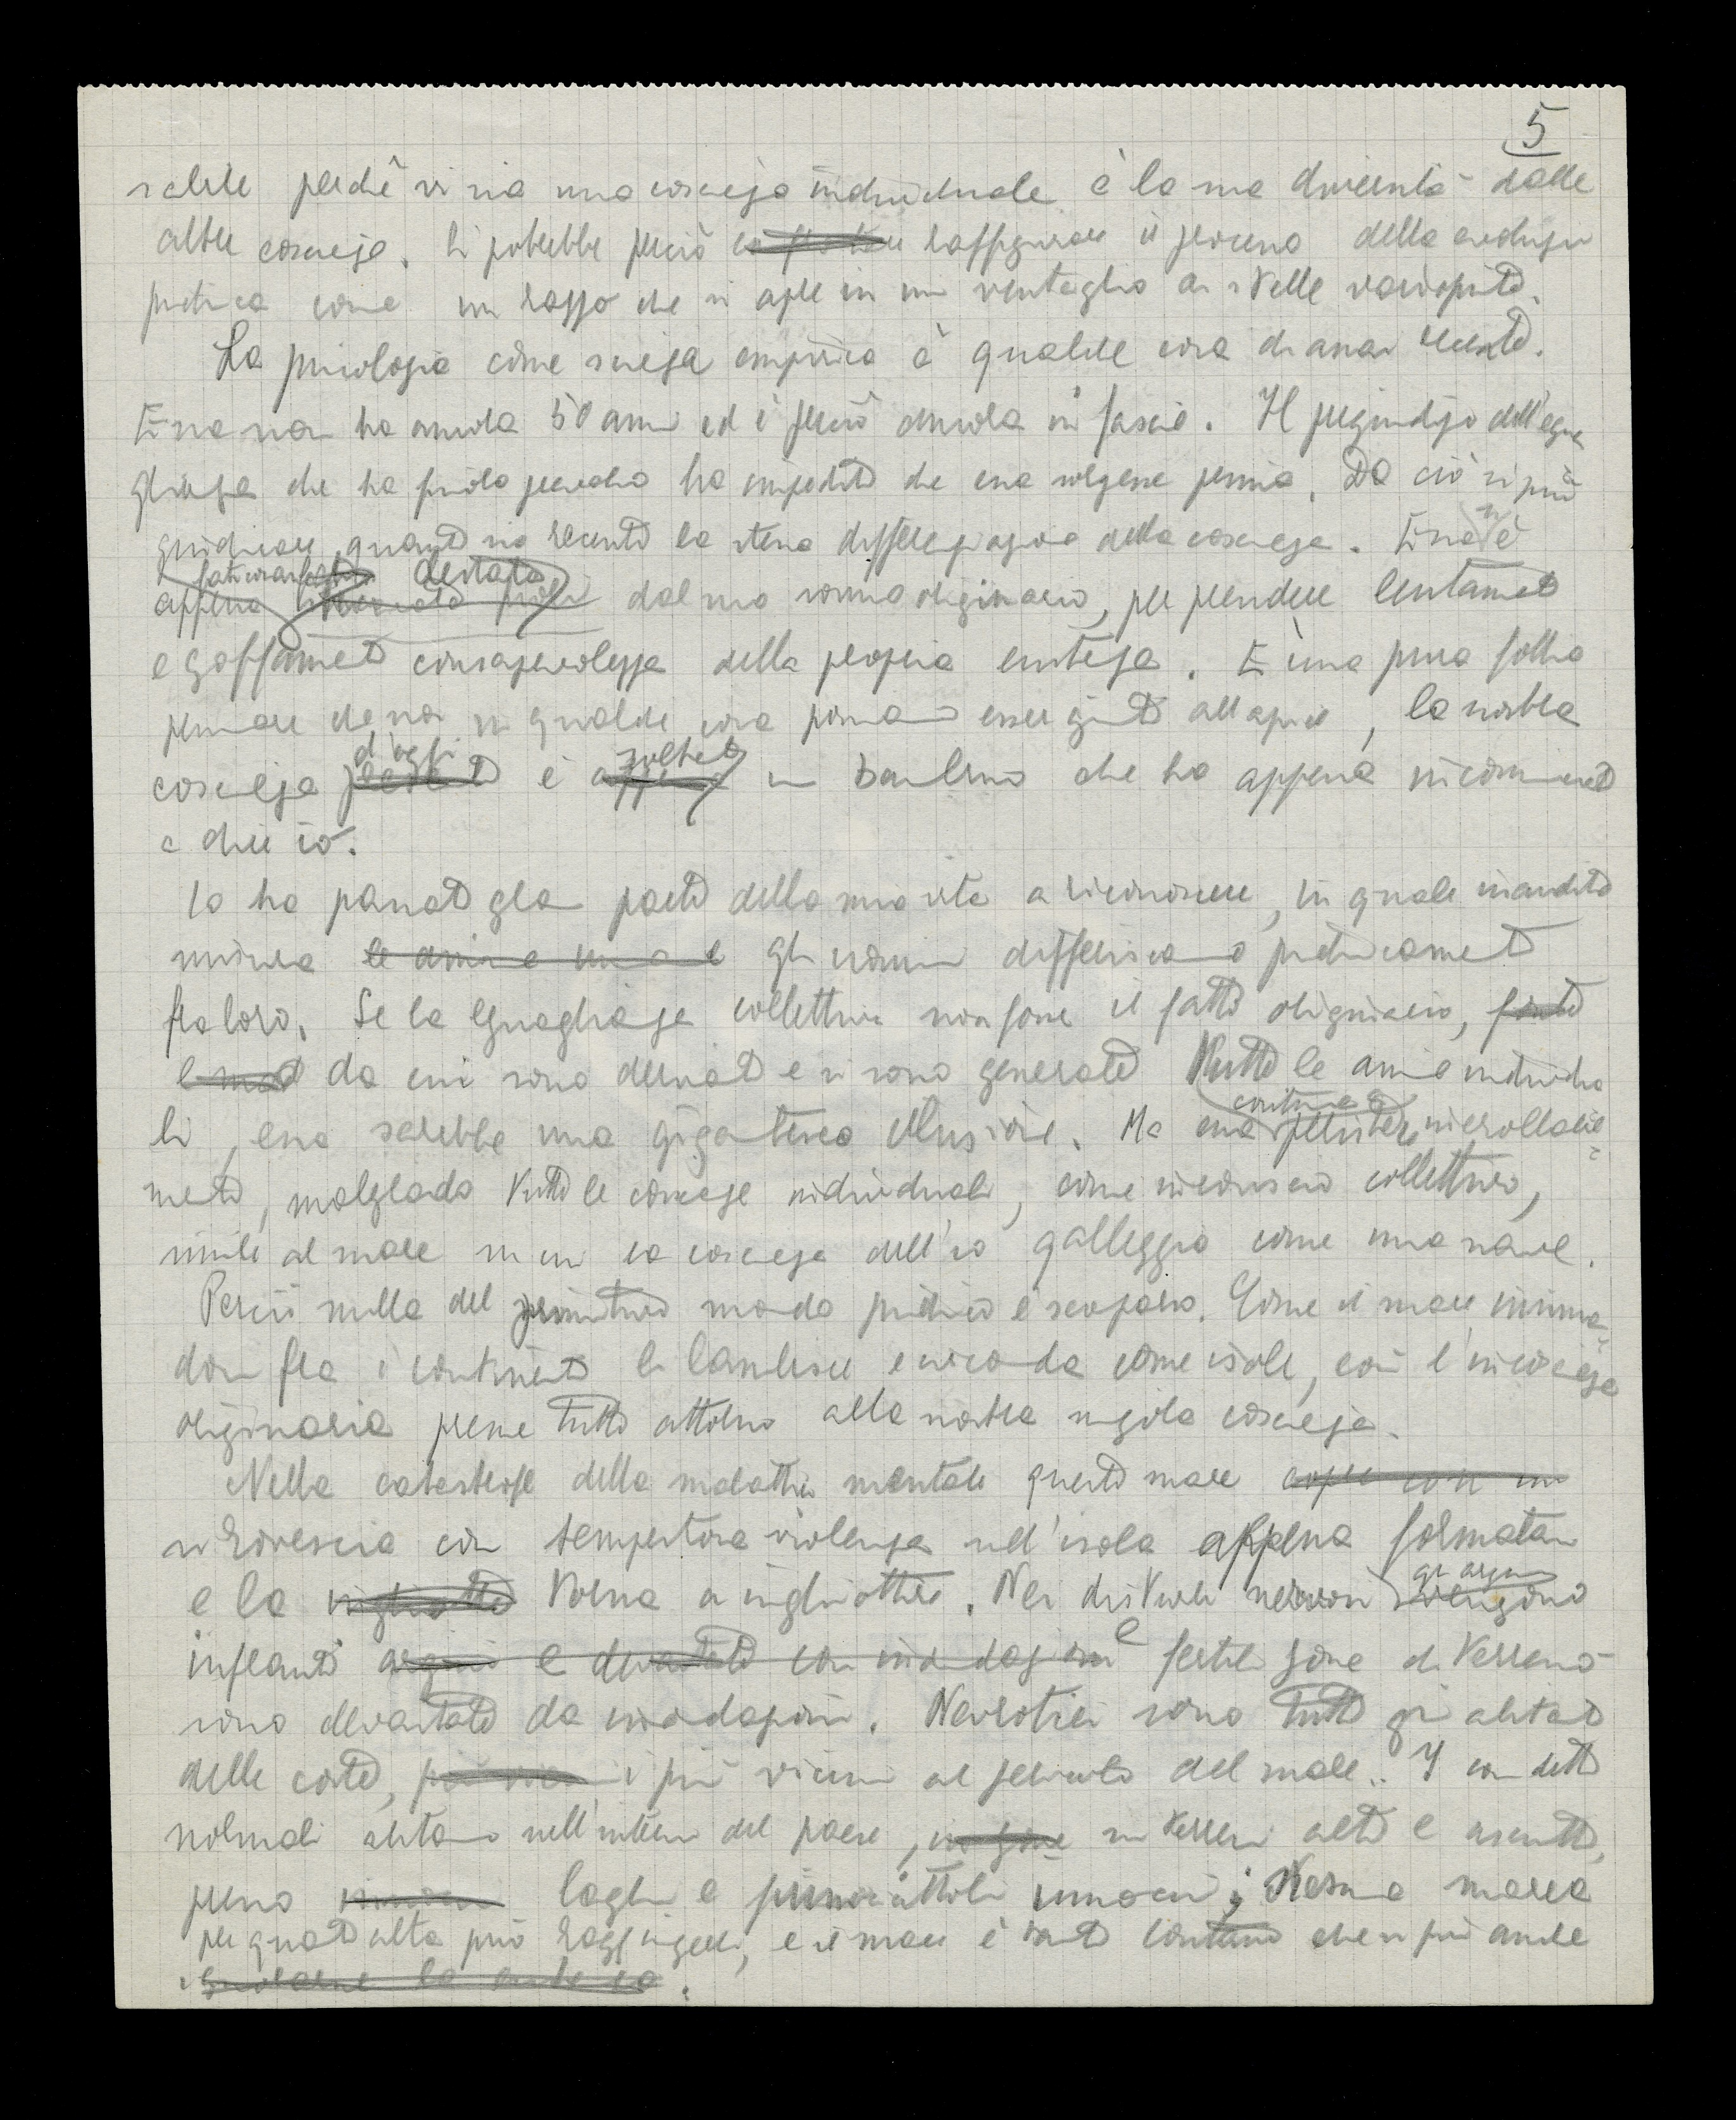 5
perchè vi sia una coscienza individuale è la sua diversità dalle
altre coscienze. Si potrebbe perciò raffigurare il processo della evoluzione
psichica come un razzo che si apre in un ventaglio di stelle variopinte.
La psicologia come scienza empirica è qualche cosa di assai recente.
Essa non ha ancora 50 anni ed è perciò ancora in fascie. Il pregiudizio dell'egua
glianza che ha ha impedito che essa sorgesse prima. Da ciò si può
giudicare quanto sia recente la stessa differenziazione della coscienza. Essa si è
faticosamente destata
appena dal suo sonno originario, per prendere lentamente
e goffamente consapevolezza della propria esistenza. È una pura follia
pensare che noi in qualche cosa possiamo esser giunti all'apice, la nostra
d'oggi soltanto
coscienza è un bambino che ha appena incominciato
a dire io.
Io ho passato gran parte della mia vita a riconoscere, in quale inaudita
misura le anime umane gli uomini differiscano psichicamente
fra loro. Se la eguaglianza collettiva non fosse il fatto originario, fonte
e madre da cui sono derivate e si sono generate tutte le anime individua
li, essa sarebbe una gigantesca illusione. Ma essa
continua a persistere incrollabil=
mente, malgrado tutte le coscienze individuali, come inconscio collettivo,
simile al mare su cui la coscienza dell'io galleggia come una nave.
Perciò nulla del primitivo mondo psichico è scomparso. Come il mare insinuan=
dosi fra i continenti li lambisce e circonda come isole, così l'incoscienza
originaria preme tutto attorno alla nostra singola coscienza.
Nella catastrofe della malattia mentale questo mare
si rovescia con tempestosa violenza sull'isola appena formatasi
e la inghiotte torna a inghiottire. Nei disturbi nervosi vengono
gli argini
infranti argini e devastate con inondazioni e fertili zone di terreno
sono devastate da inondazioni. Nevrotici sono tutti gli abitanti
delle coste, più vicini i più vicini al pericolo del mare. I così detti
normali abitano nell'interno del paese, su terreni alti e asciutti,
presso laghi e fiumiciattoli innocui; nessuna marea
per quanto alta può raggiungerli, e il mare è tanto lontano che si può anche
ignorarne la esistenza.